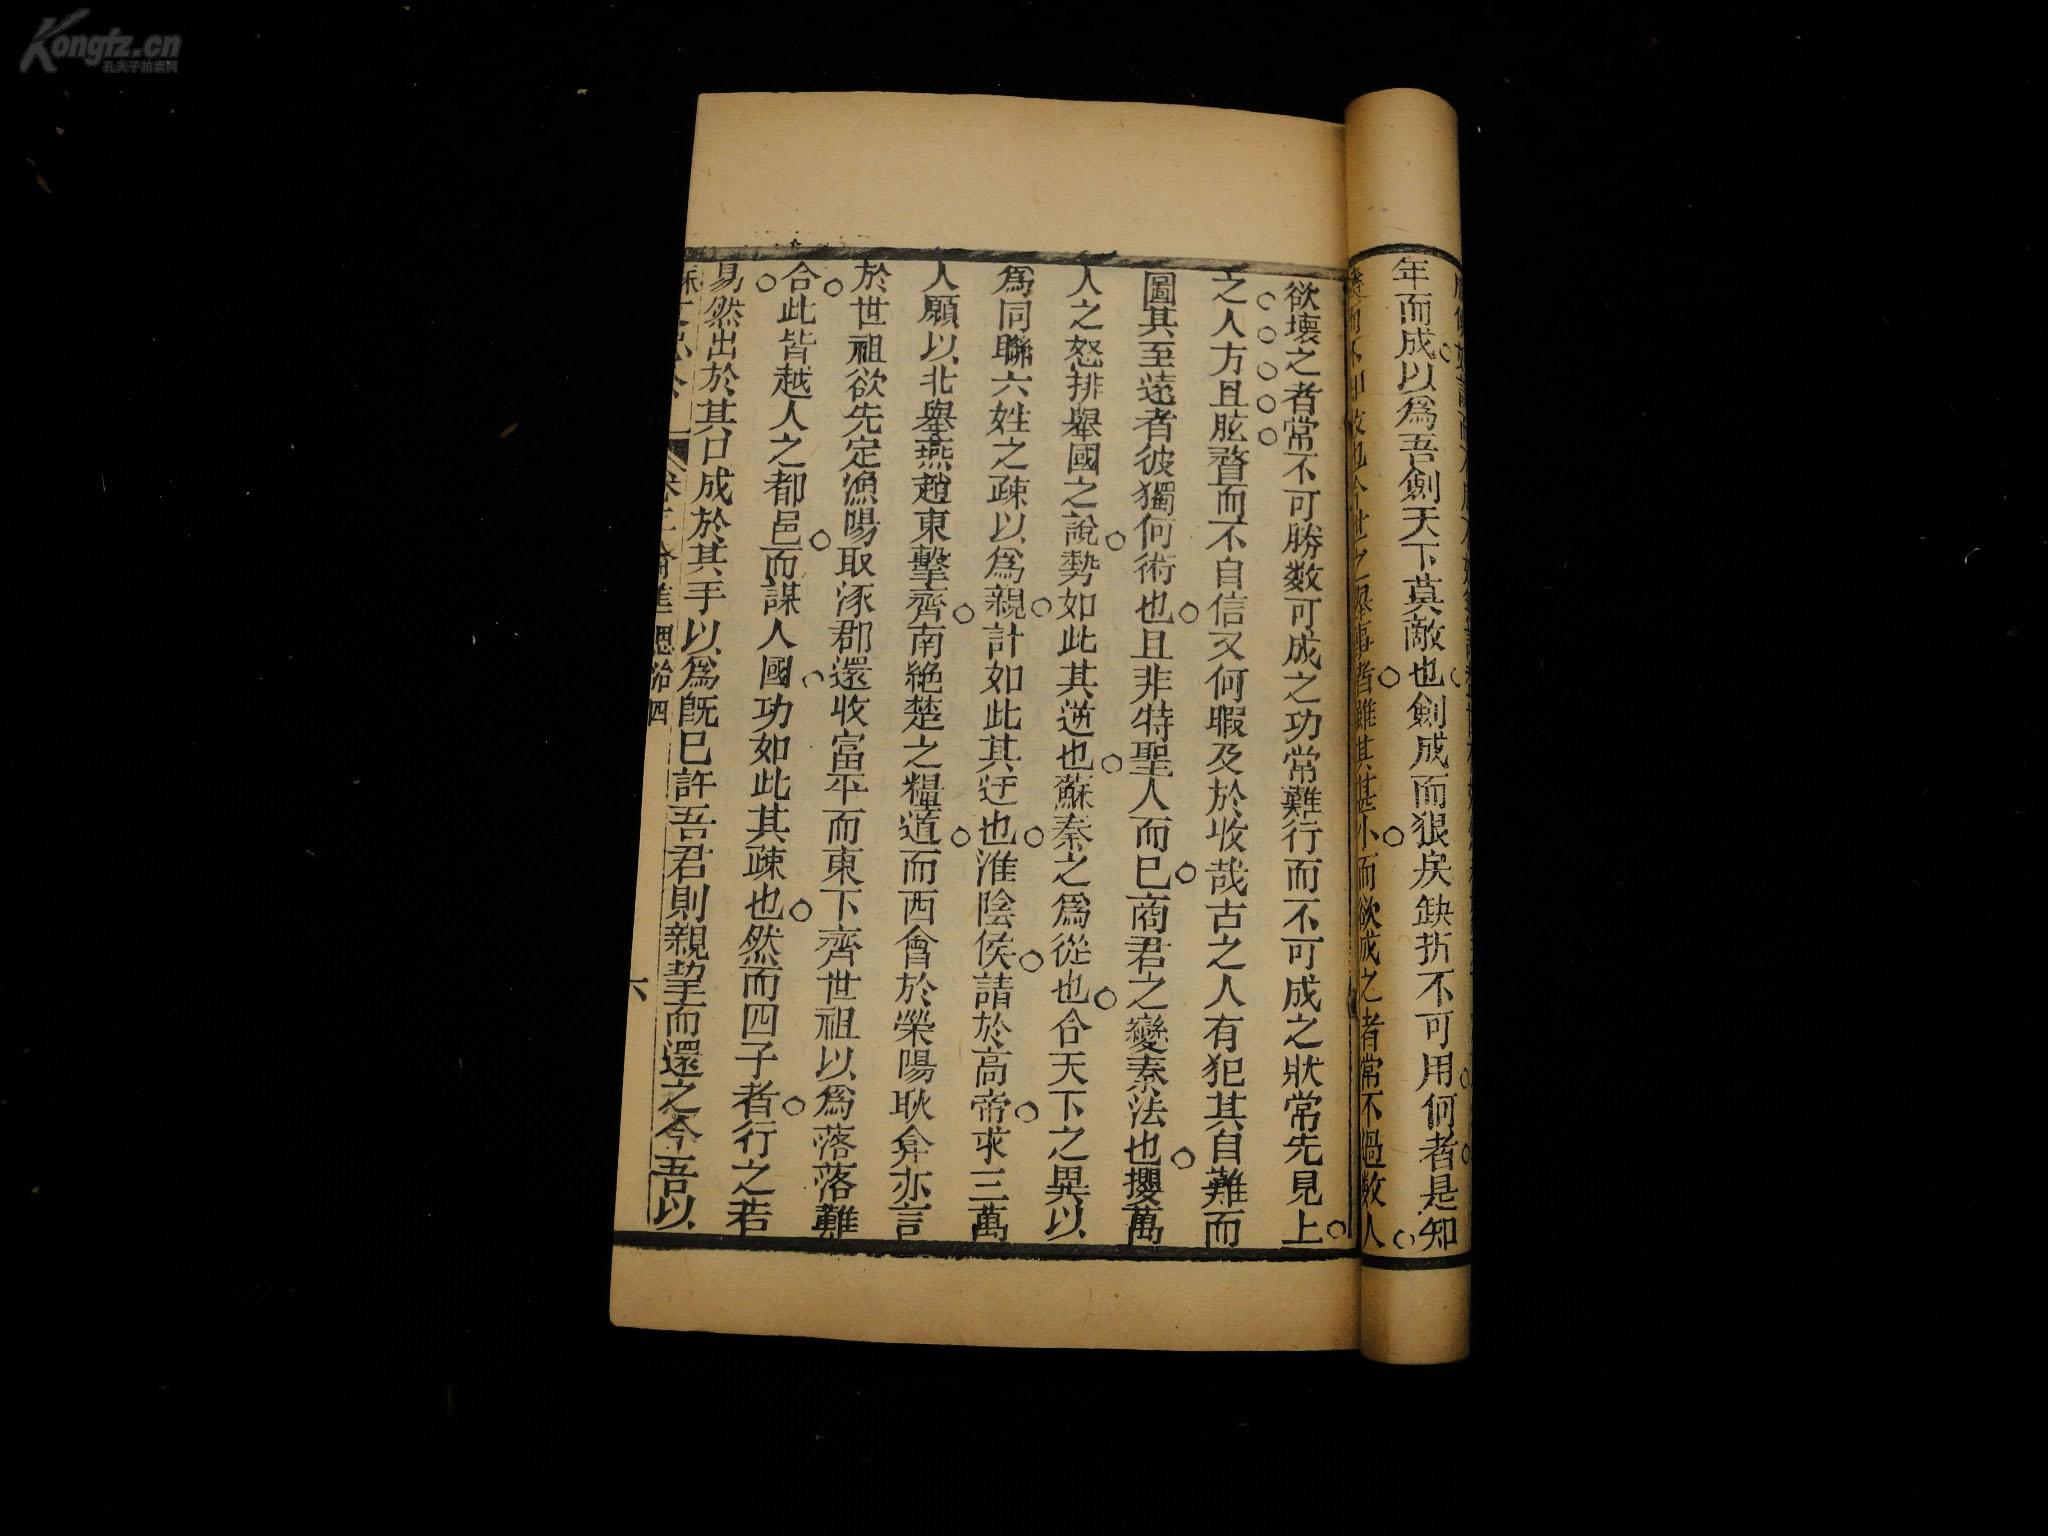 年而成以爲吾劍天下莫敵也劍成而狠戾缺折不可用何者是知
之舉事者雖其甚小而欲成之者常不過數人
欲壞之者常不可勝數可成之功常難行而不可成之狀常先見上
之人方且眩瞀而不自信又何暇及於收哉古之人有犯其自難而
圖其至遠者彼獨何術也且非特聖人而已商君之變秦法也攖萬
人之怒排舉國之說勢如此其逆也蘇秦之爲從也合天下之異以
爲同聯六姓之疎以爲親計如此其迂也淮陰侯請於高帝求三萬
人願以北舉燕趙東擊齊南絶楚之糧道而西會於滎陽耿弇亦言
於世祖欲先定漁陽取涿郡還收富平而東下齊世祖以爲落落難
合此皆越人之都邑而謀人國功如此其疎也然而四子者行之若
易然出於其口成於其手以爲旣已許吾君則親挈而還之今吾以
思治四
六
Kongfz.cn
孔夫子拍卖网